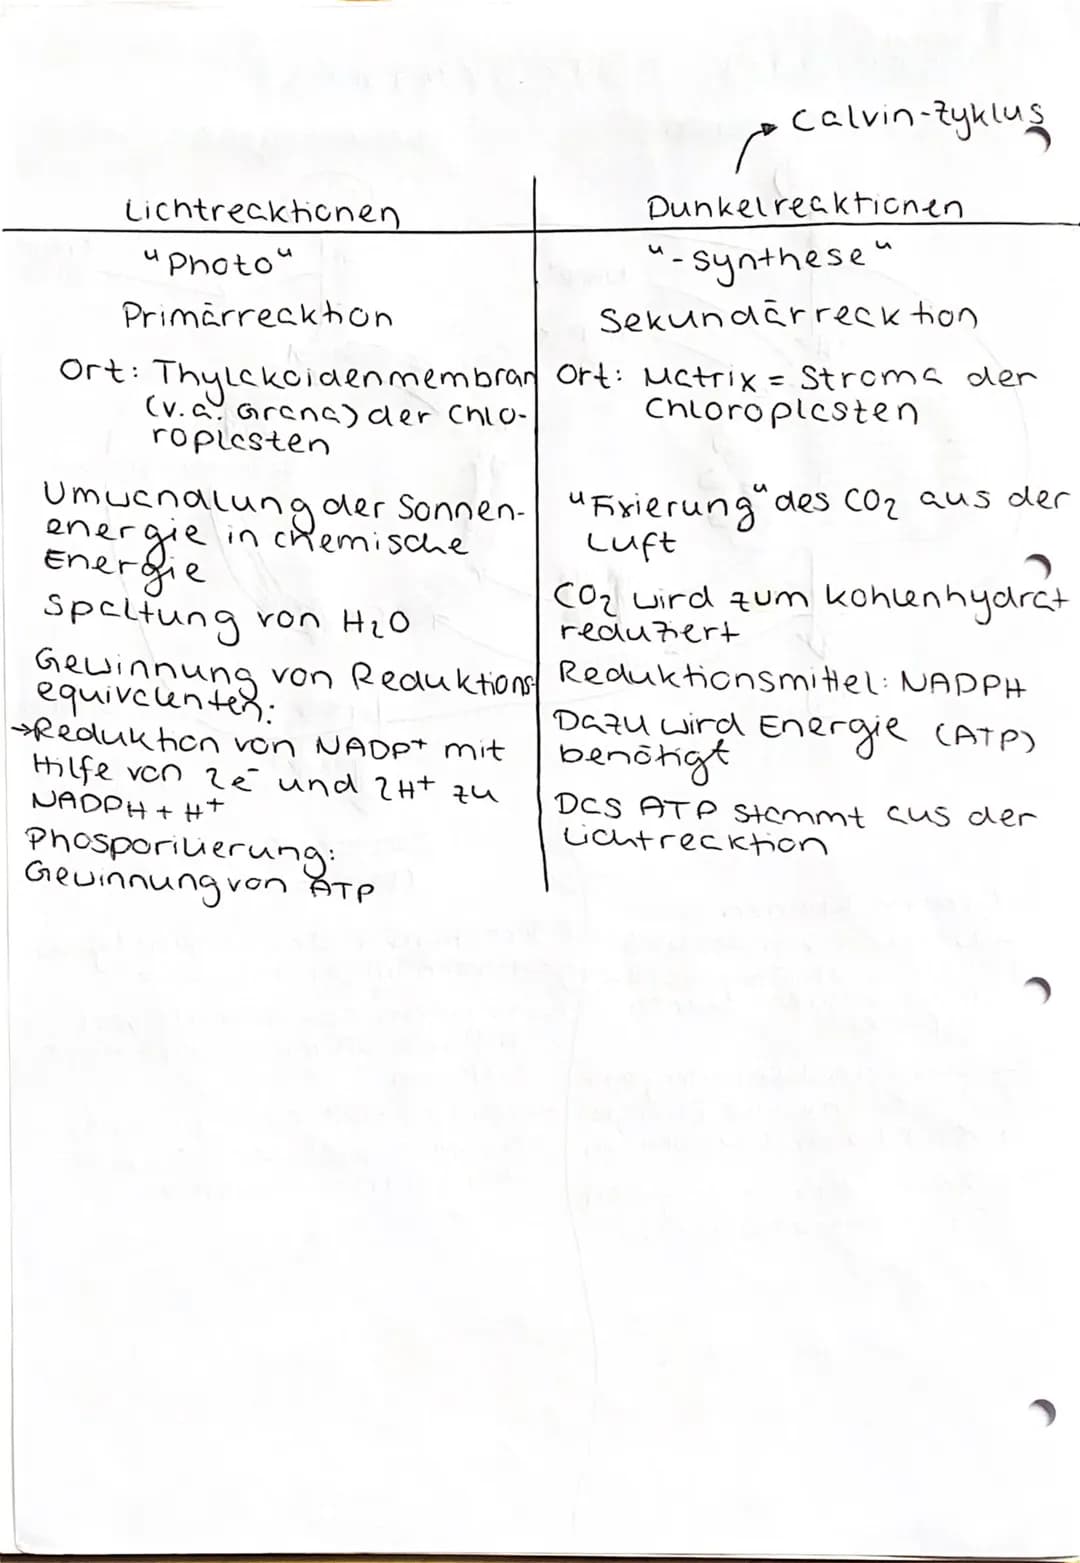 Calvin-Zyklus
Lichtreaktionen
"Photo"
Primärreaktion
Ort: Thylakoidenmembran
(v.a. Grana) der Chlo-
roplasten
Umwandlung der Sonnen-
energie in chemische
Energie
Spaltung von H₂O
Gewinnung von Reduktions-
equivalenten:
→Reduktion von NADP⁺ mit
Hilfe von 2e⁻ und 2H⁺ zu
NADPH + H⁺
Phosporilierung:
Gewinnung von ATP
Dunkelreaktionen
"-synthese"
Sekundärreaktion
Ort: Matrix = Stroma der
Chloroplasten
"Fixierung" des CO₂ aus der
Luft
CO₂ wird zum Kohlenhydrat
reduziert
Reduktionsmittel: NADPH
Dazu wird Energie (ATP)
benötigt
Das ATP stammt aus der
Lichtreaktion